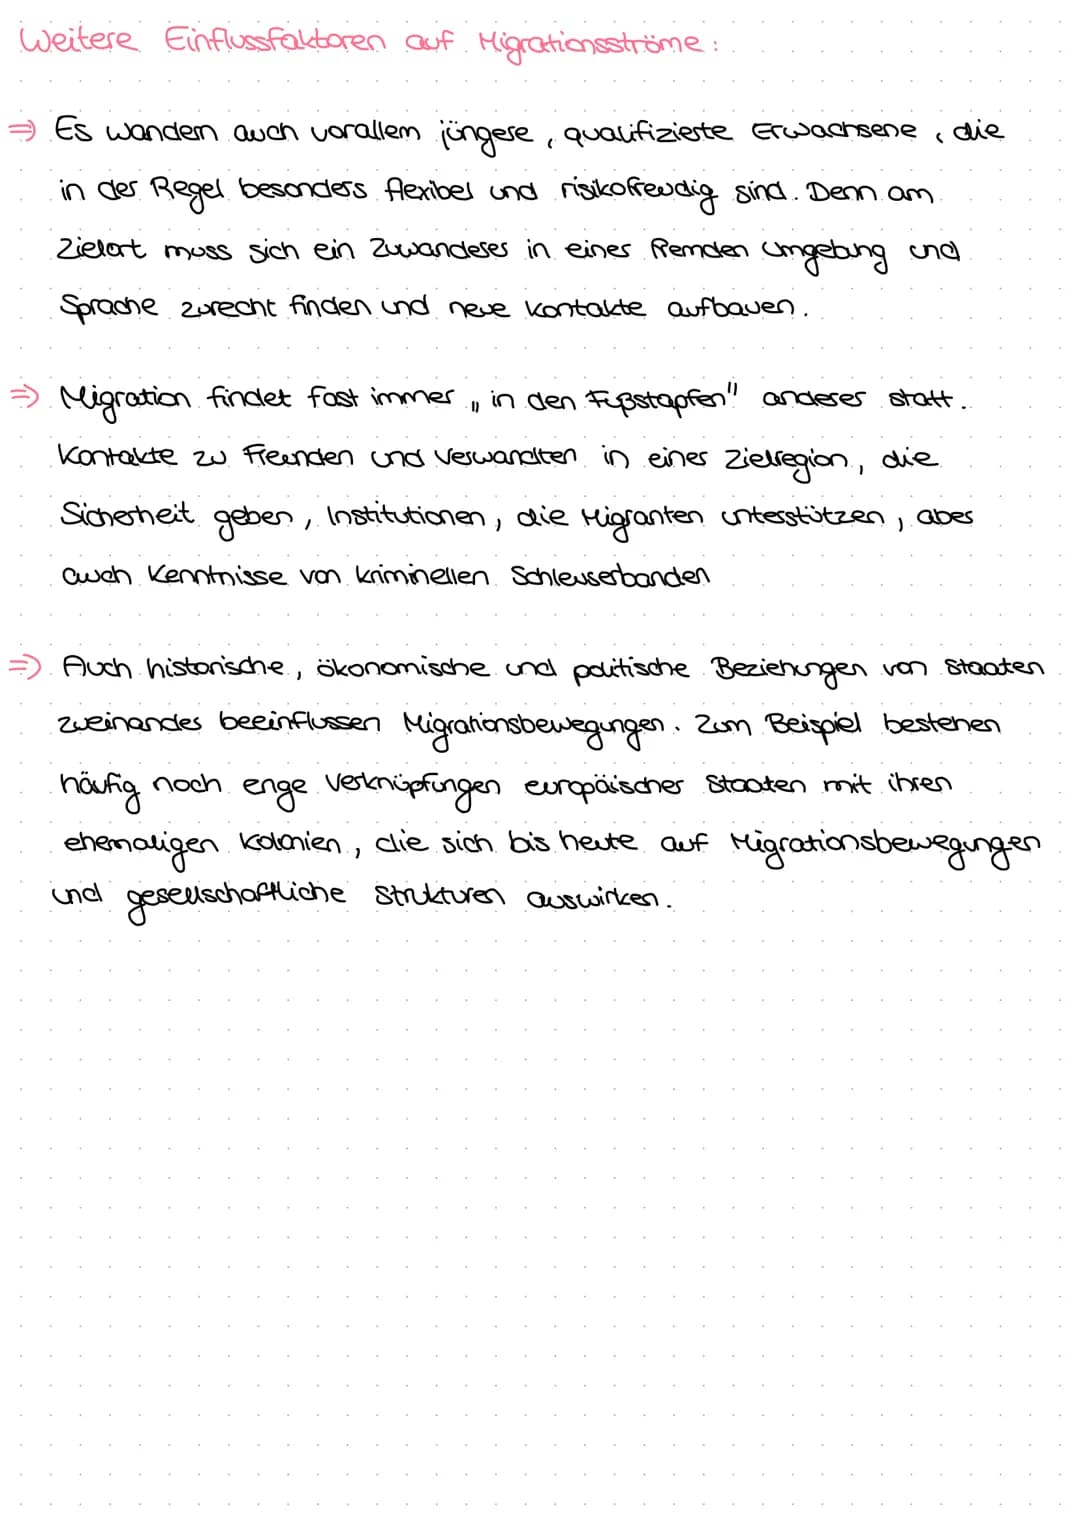 Weitere Einflussfaktoren auf Migrationsströme:
⇒ Es wandern auch vorallem jüngere, qualifizierte Erwachsene, die
in der Regel besonders flexibel und risikofreudig sind. Denn am
Zielort muss sich ein Zuwanderer in einer fremden Umgebung und
Sprache zurecht finden und neue Kontakte aufbauen.
⇒ Migration findet fast immer „in den Fußstapfen" anderer statt.
Kontakte zu Freunden und Verwandten in einer Zielregion, die
Sicherheit geben, Institutionen, die Migranten unterstützen, aber
auch Kenntnisse von kriminellen Schleuserbanden
⇒ Auch historische, ökonomische und politische Beziehungen von Staaten
zueinander beeinflussen Migrationsbewegungen. Zum Beispiel bestehen
häufig noch enge Verknüpfungen europäischer Staaten mit ihren
ehemaligen Kolonien, die sich bis heute auf Migrationsbewegungen
und gesellschaftliche Strukturen auswirken.